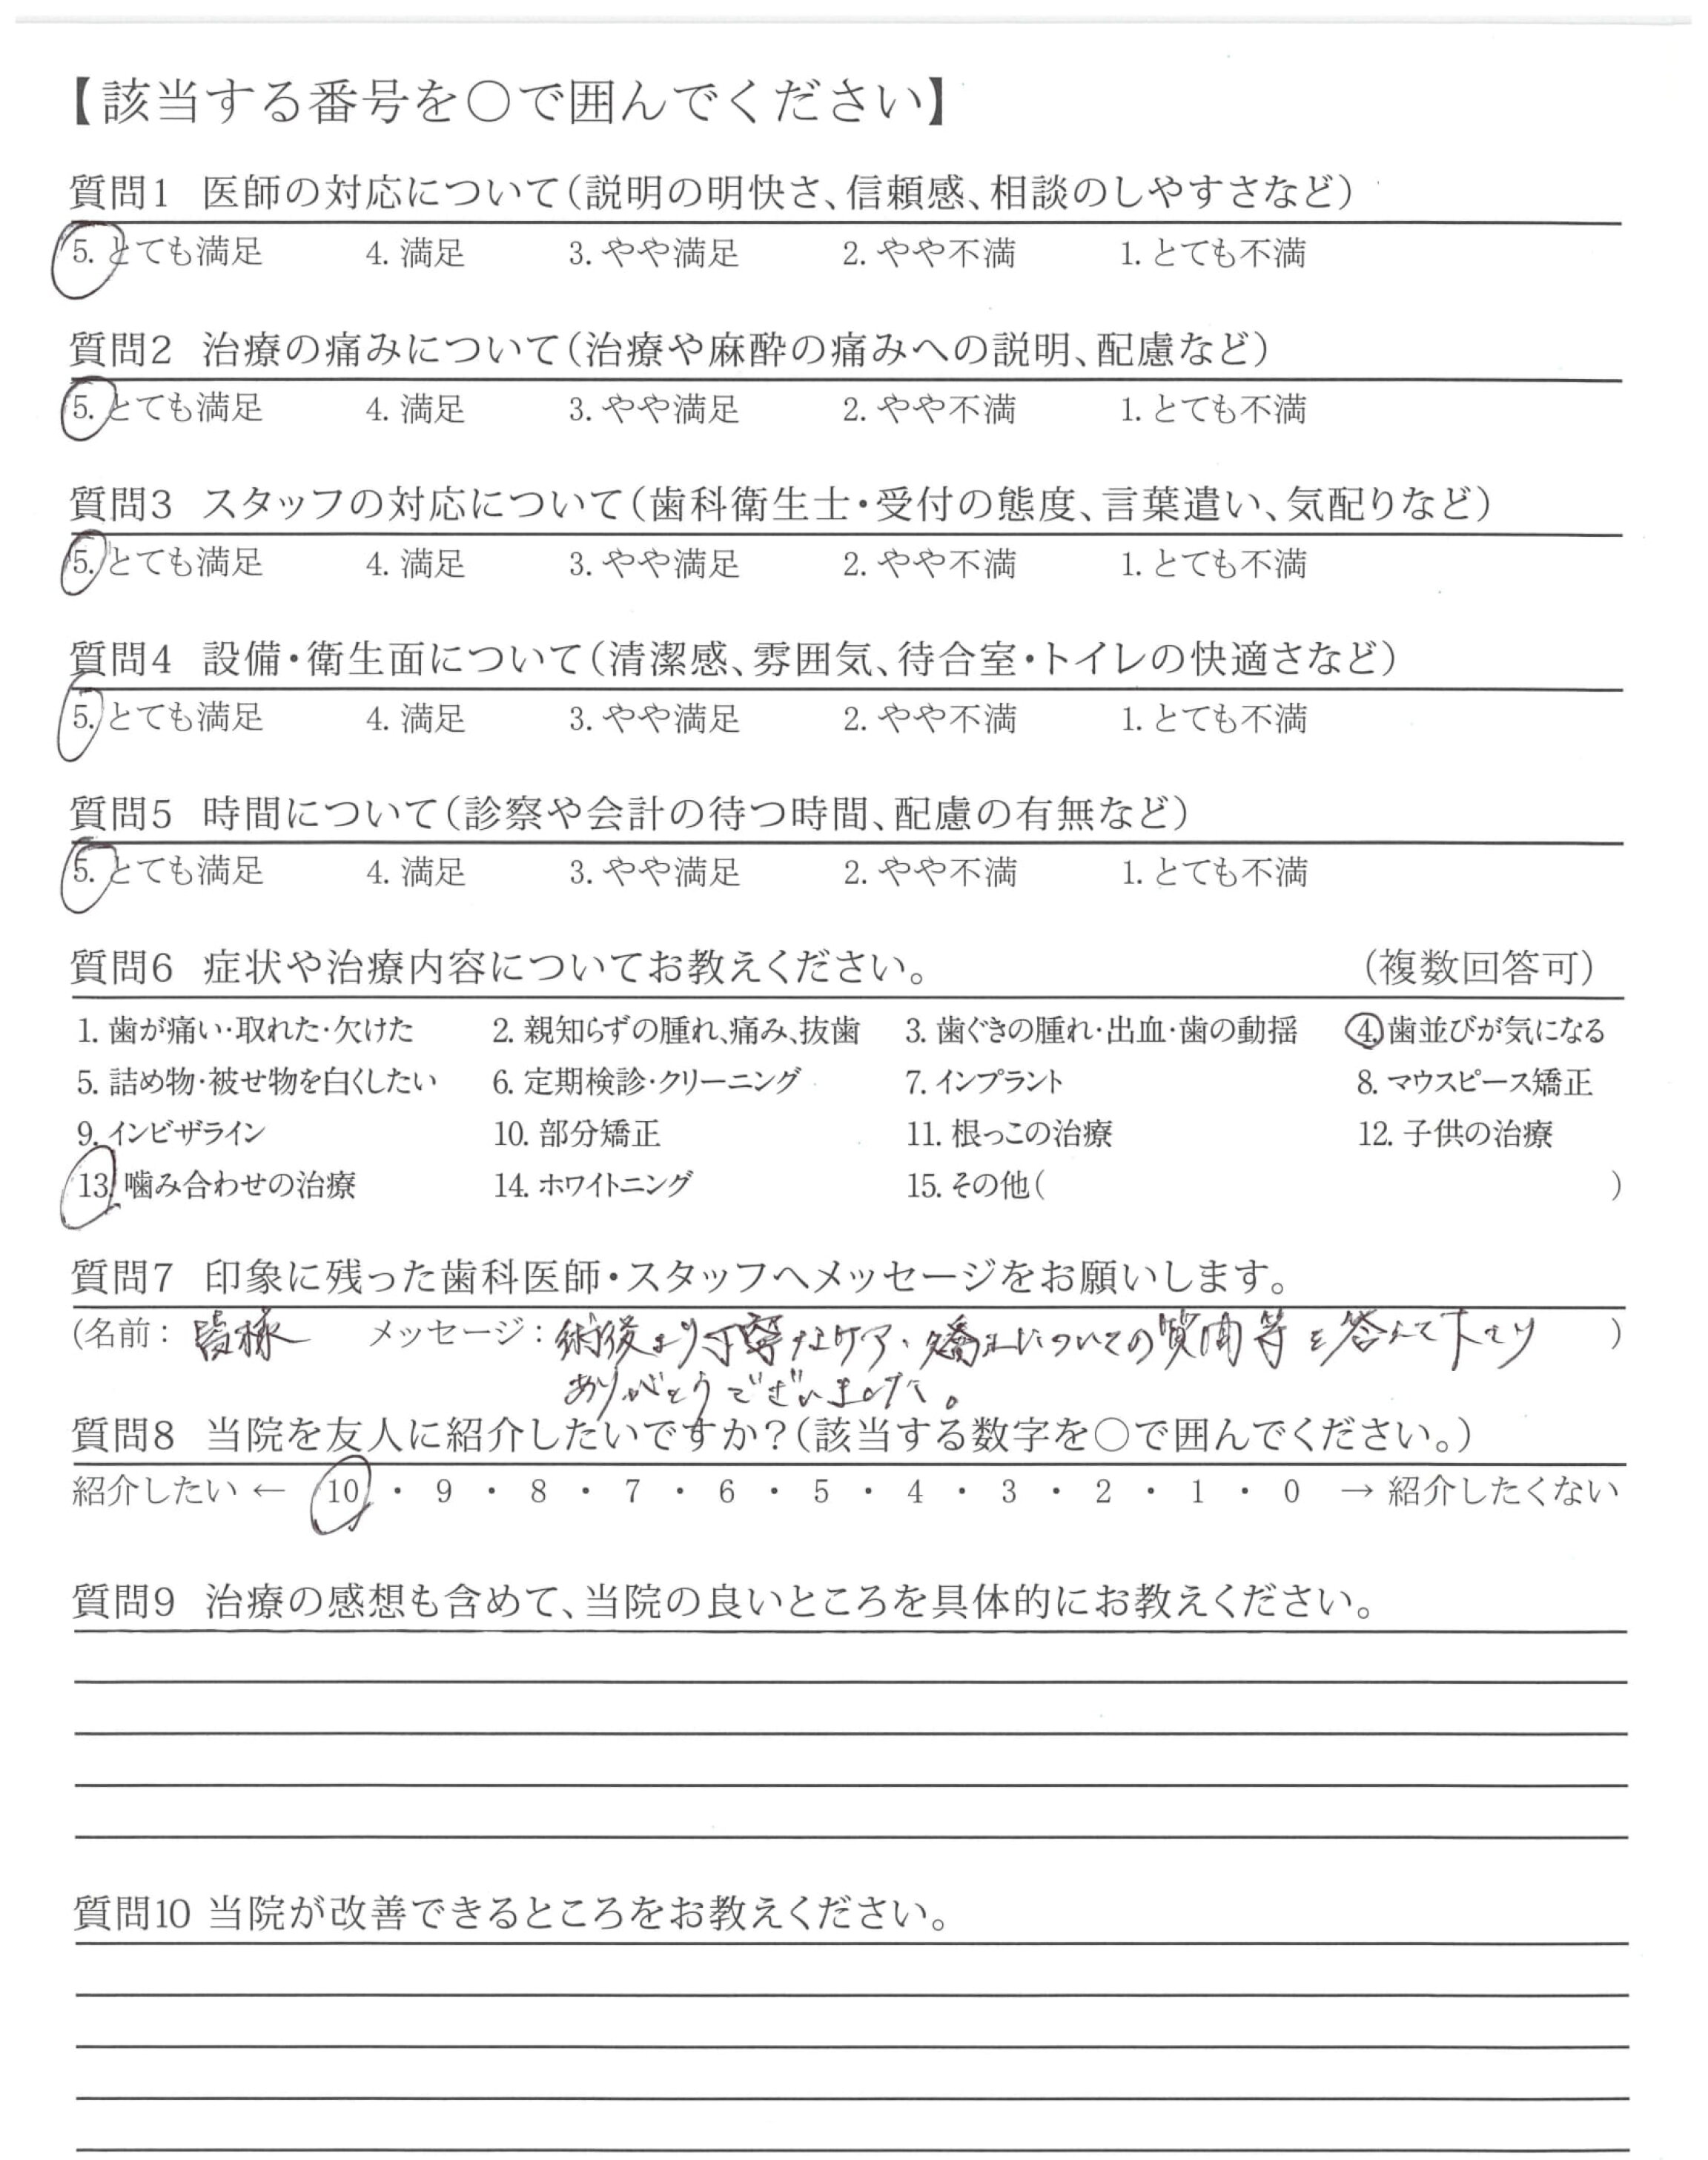 【該当する番号を〇で囲んでください】
質問1 医師の対応について(説明の明快さ、信頼感、相談のしやすさなど)
5. とても満足 4. 満足 3. やや満足 2. やや不満 1. とても不満
質問2 治療の痛みについて(治療や麻酔の痛みへの説明、配慮など)
5. とても満足 4. 満足 3. やや満足 2. やや不満 1. とても不満
質問3 スタッフの対応について(歯科衛生士・受付の態度、言葉遣い、気配りなど)
5. とても満足 4. 満足 3. やや満足 2. やや不満 1. とても不満
質問4 設備・衛生面について(清潔感、雰囲気、待合室・トイレの快適さなど)
5. とても満足 4. 満足 3. やや満足 2. やや不満 1. とても不満
質問5 時間について(診察や会計の待つ時間、配慮の有無など)
5. とても満足 4. 満足 3. やや満足 2. やや不満 1. とても不満
質問6 症状や治療内容についてお教えください。 (複数回答可)
1. 歯が痛い・取れた・欠けた 2. 親知らずの腫れ、痛み、抜歯 3. 歯ぐきの腫れ・出血・歯の動揺 4. 歯並びが気になる
5. 詰め物・被せ物を白くしたい 6. 定期検診・クリーニング 7. インプラント 8. マウスピース矯正
9. インビザライン 10. 部分矯正 11. 根っこの治療 12. 子供の治療
13. 噛み合わせの治療 14. ホワイトニング 15. その他( )
質問7 印象に残った歯科医師・スタッフへメッセージをお願いします。
(名前: 皆様 メッセージ: 術後より丁寧なケア、矯正についての質問等を答えて下さり )
ありがとうございました。
質問8 当院を友人に紹介したいですか?(該当する数字を〇で囲んでください。)
紹介したい ← 10 ・ 9 ・ 8 ・ 7 ・ 6 ・ 5 ・ 4 ・ 3 ・ 2 ・ 1 ・ 0 → 紹介したくない
質問9 治療の感想も含めて、当院の良いところを具体的にお教えください。
質問10 当院が改善できるところをお教えください。